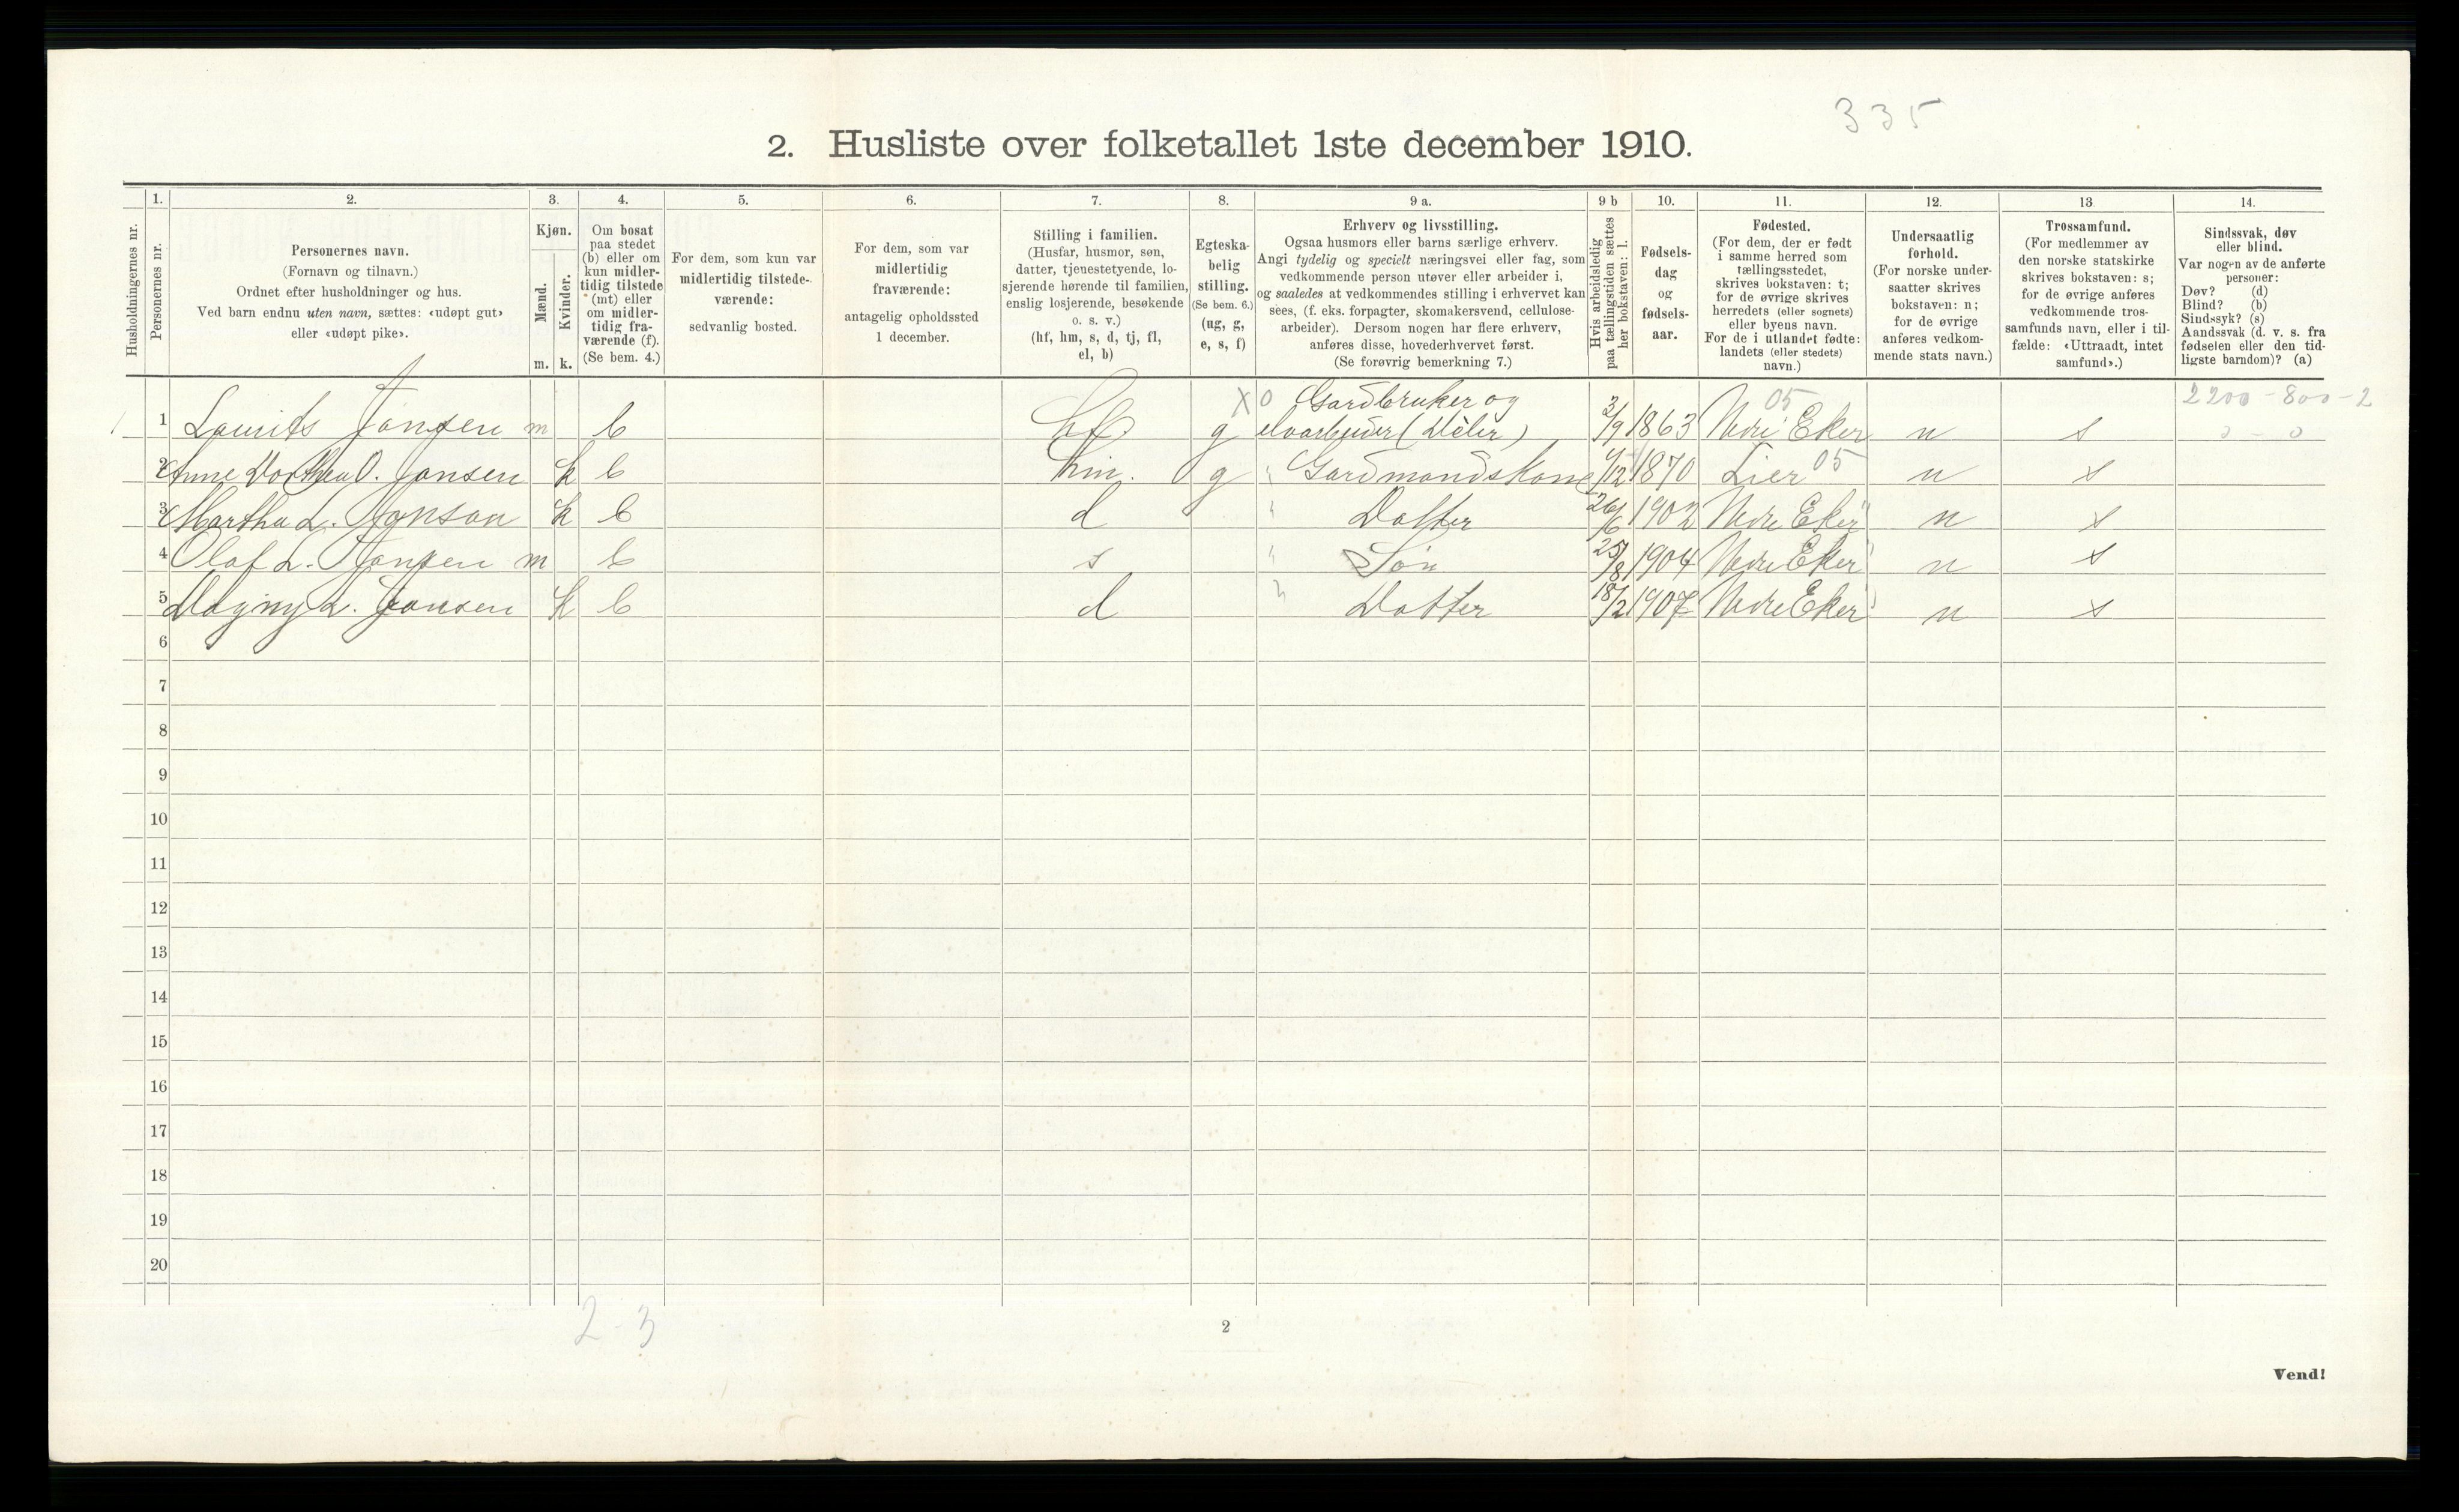 335
2. Husliste over folketallet 1ste december 1910.
Husholdningernes nr.
1.
Personernes nr.
2.
Personernes navn.
(Fornavn og tilnavn.)
Ordnet efter husholdninger og hus.
Ved barn endnu uten navn, sættes: «udøpt gut»
eller «udøpt pike».
3.
Kjøn.
Mænd.
m.
Kvinder.
k.
4.
Om bosat
paa stedet
(b) eller om
kun midler-
tidig tilstede
(mt) eller
om midler-
tidig fra-
værende (f).
(Se bem. 4.)
5.
For dem, som kun var
midlertidig tilstede-
værende:
sedvanlig bosted.
6.
For dem, som var
midlertidig
fraværende:
antagelig opholdssted
1 december.
7.
Stilling i familien.
(Husfar, husmor, søn,
datter, tjenestetyende, lo-
sjerende hørende til familien,
enslig losjerende, besøkende
o. s. v.)
(hf, hm, s, d, tj, fl,
el, b)
8.
Egteska-
belig
stilling.
(Se bem. 6.)
(ug, g,
e, s, f)
9 a.
Erhverv og livsstilling.
Ogsaa husmors eller barns særlige erhverv.
Angi tydelig og specielt næringsvei eller fag, som
vedkommende person utøver eller arbeider i,
og saaledes at vedkommendes stilling i erhvervet kan
sees, (f. eks. forpagter, skomakersvend, cellulose-
arbeider). Dersom nogen har flere erhverv,
anføres disse, hovederhvervet først.
(Se forøvrig bemerkning 7.)
9 b
Hvis arbeidsledig
paa tællingstiden sættes
her bokstaven: l.
10.
Fødsels-
dag
og
fødsels-
aar.
11.
Fødested.
(For dem, der er født
i samme herred som
tællingsstedet,
skrives bokstaven: t;
for de øvrige skrives
herredets (eller sognets)
eller byens navn.
For de i utlandet fødte:
landets (eller stedets)
navn.)
12.
Undersaatlig
forhold.
(For norske under-
saatter skrives
bokstaven: n;
for de øvrige
anføres vedkom-
mende stats navn.)
13.
Trossamfund.
(For medlemmer av
den norske statskirke
skrives bokstaven: s;
for de øvrige anføres
vedkommende tros-
samfunds navn, eller i til-
fælde: «Uttraadt, intet
samfund».)
14.
Sindssvak, døv
eller blind.
Var nogen av de anførte
personer:
Døv? (d)
Blind? (b)
Sindssyk? (s)
Aandssvak (d. v. s. fra
fødselen eller den tid-
ligste barndom)? (a)
X 0 Gardbruker og 05 2200 - 800 - 2
1 Laurits Jansen m b hf g 3/9 1863 Nedre Eker n s 0 - 0
2 Anne Dorthea O. Jansen k b hm. g " Gardmandskone 1870 Lier 05 n s
3 Martha L. Jonsen k b d " Datter 26/6 1902 Nedre Eker n s
4 Olaf L. Jansen m b s " Søn 25/8 1904 Nedre Eker n s
5 Dagny L. Jansen k b d " Datter 18/2 1907 Nedre Eker n s
6
7
8
9
10
11
12
13
14
15
16
17
18
19
20
2-3
2
Vend!